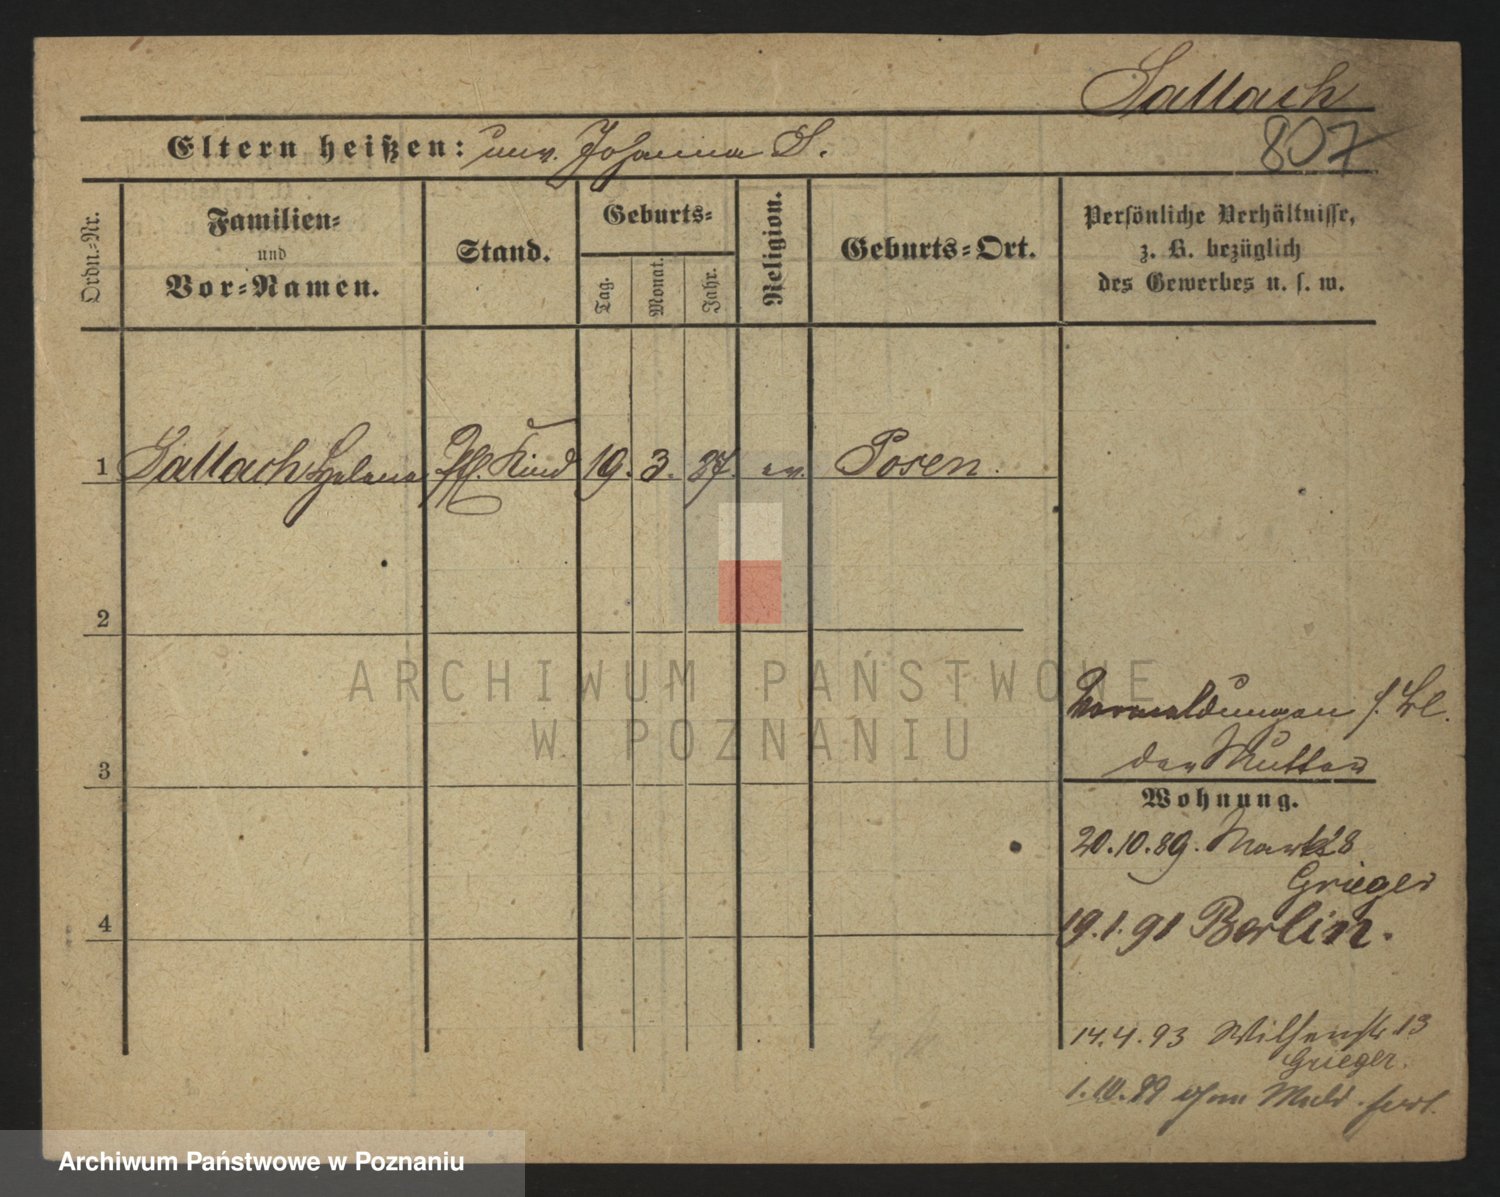 Sallach
807
Eltern heißen: unv. Johanna S.
Ordn.-Nr.
Familien-
und
Vor-Namen.
Stand.
Geburts-
Tag.
Monat.
Jahr.
Religion.
Geburts-Ort.
Persönliche Verhältnisse,
z. B. bezüglich
des Gewerbes u. s. w.
1 Sallach Helene Pfl. Kind 19. 3. 87. ev. Posen.
2
ARCHIWUM PAŃSTWOWE
W POZNANIU
Vormeldungen s. Bl.
der Mutter
3
Wohnung.
20.10.89. Markt 28
Grieger
4
19.1.91 Berlin.
14.4.93 13
Grieger.
1.10.99 ohne Meld. fort.
Archiwum Państwowe w Poznaniu